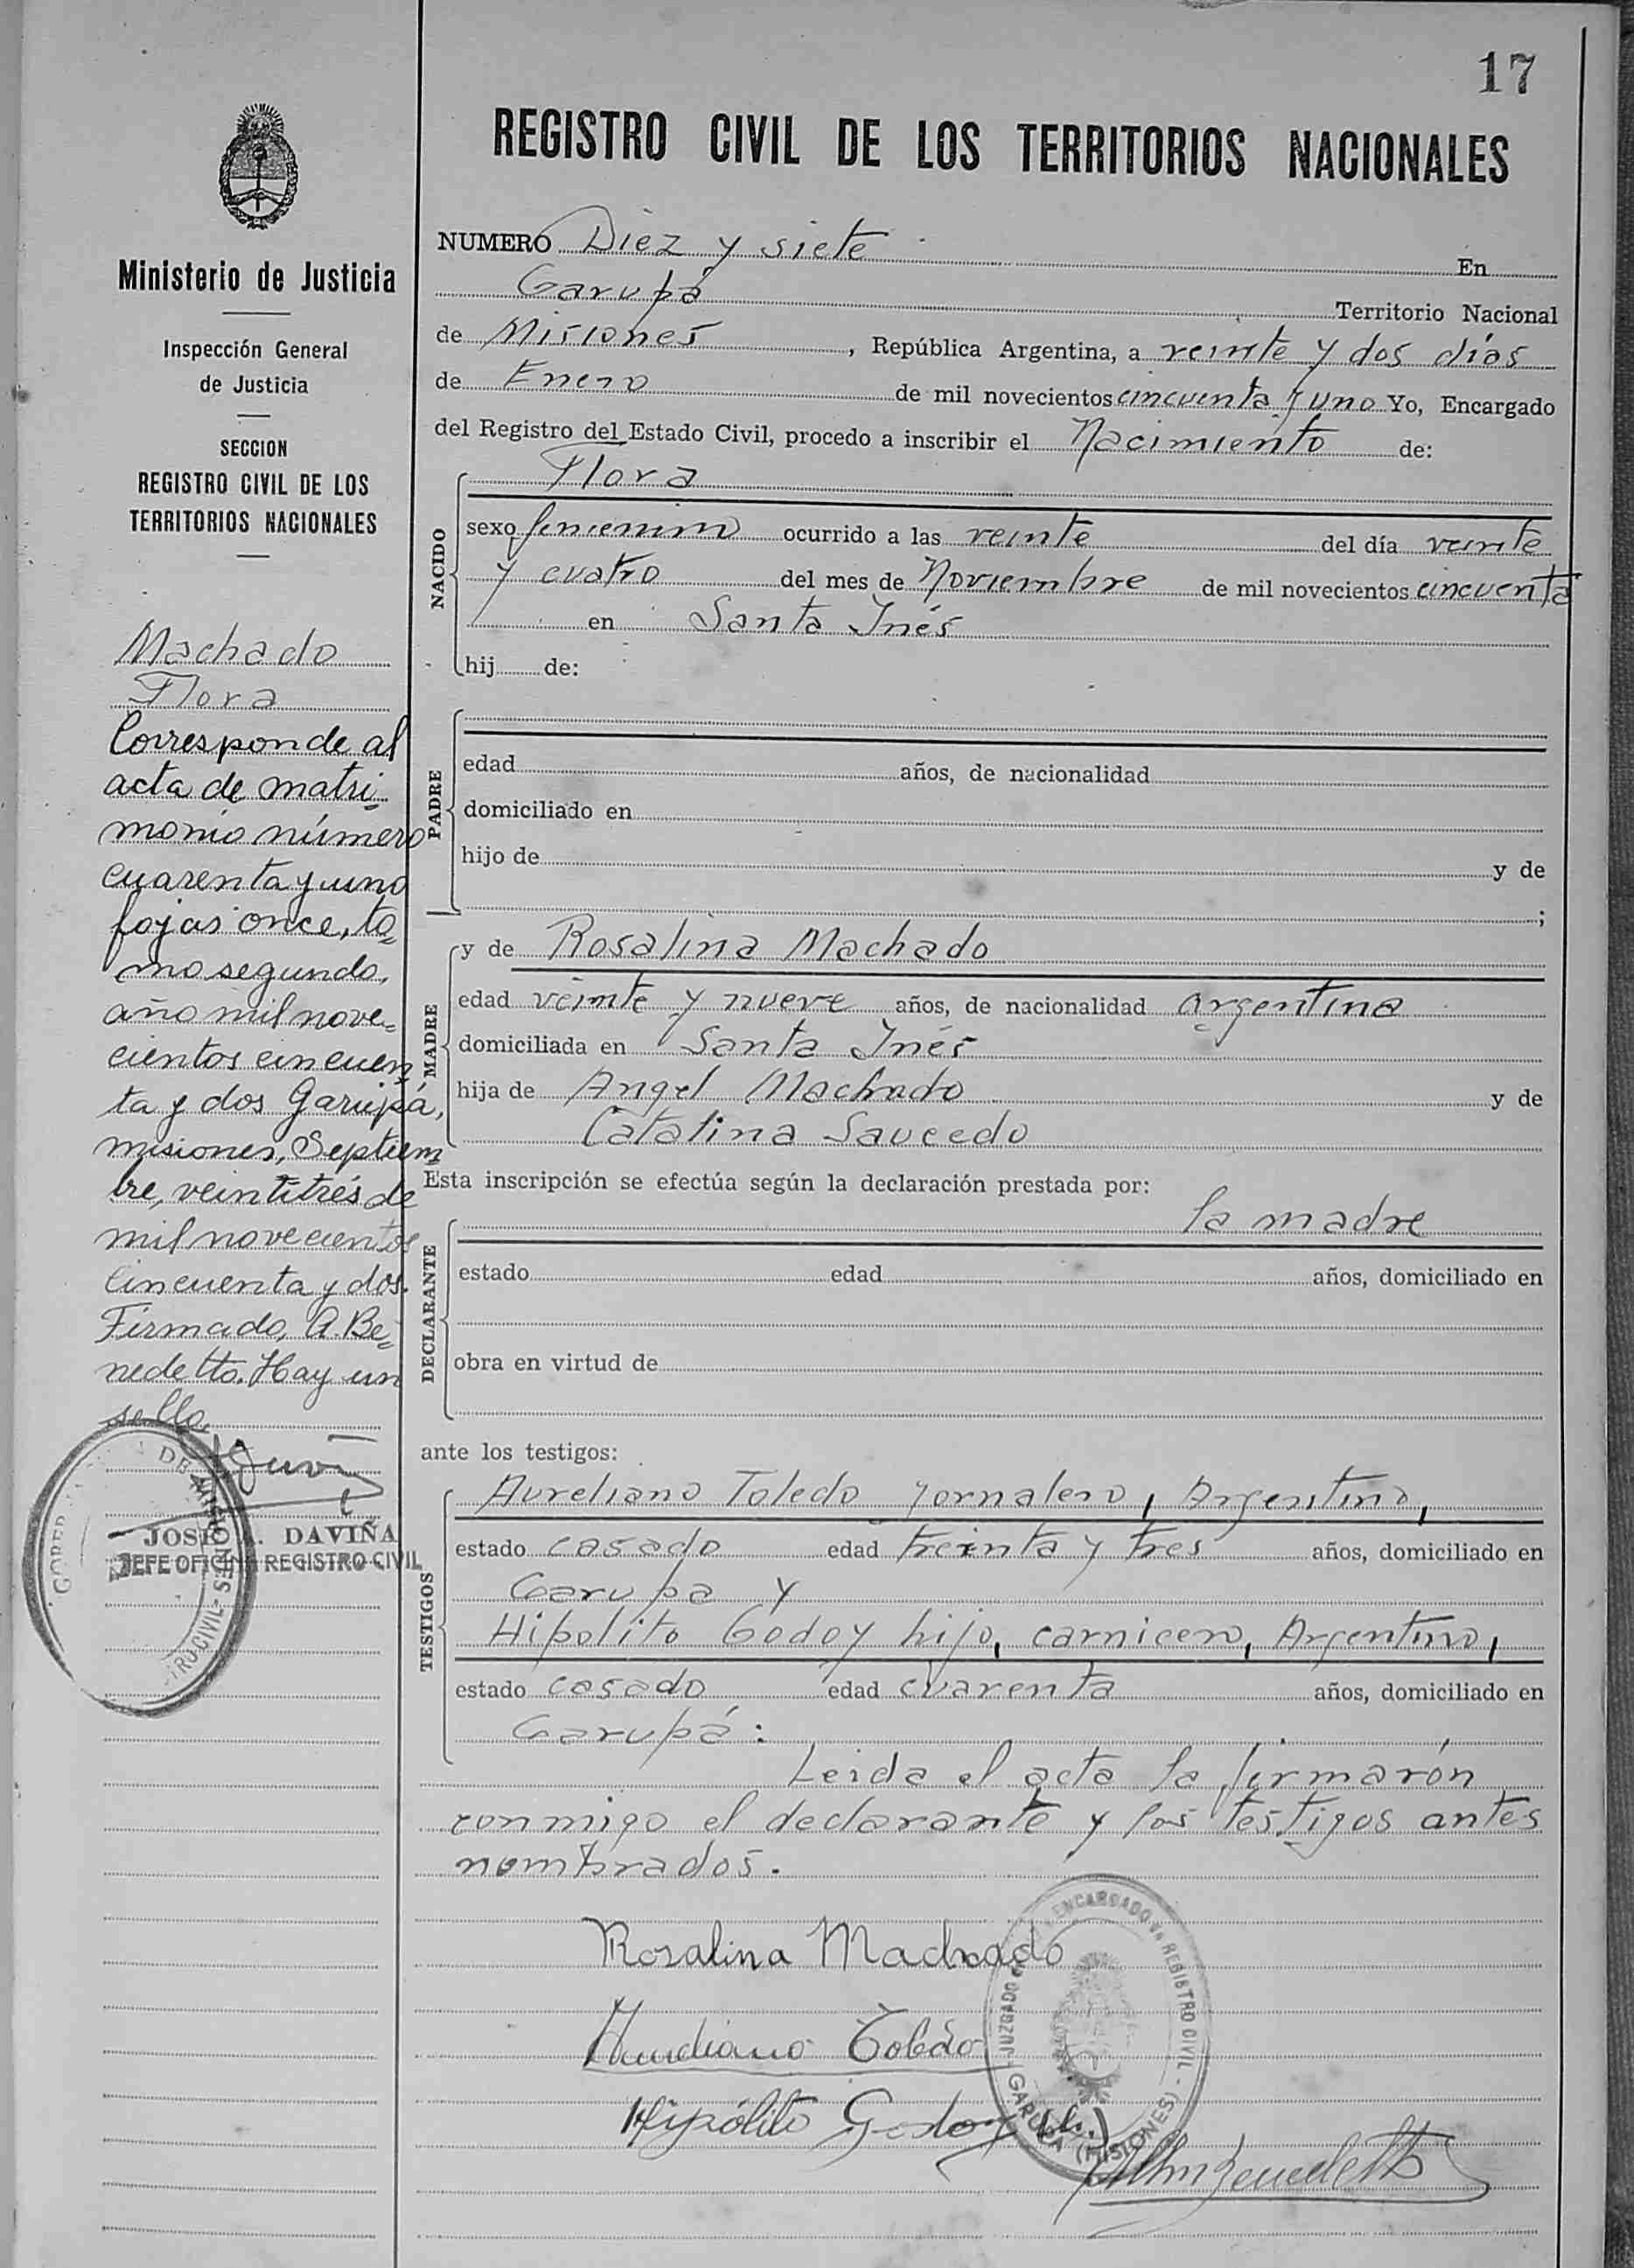 17
REGISTRO CIVIL DE LOS TERRITORIOS NACIONALES
Ministerio de Justicia
Inspección General
de Justicia
SECCION
REGISTRO CIVIL DE LOS
TERRITORIOS NACIONALES
Machado
Flora
Corresponde al
acta de matri-
monio número
cuarenta y uno
fojas once, to-
mo segundo,
año mil nove-
cientos cincuen
ta y dos Garupá,
misiones, Septiem
bre, veintitrés de
mil novecientos
Cincuenta y dos.
Firmado, A. Be-
nedetto. Hay un
sello
JOSE DAVIÑA
JEFE OFICINA REGISTRO CIVIL
DE MISIONES
CIVIL
NUMERO Diez y siete En
Garupá Territorio Nacional
de Misiones, República Argentina, a veinte y dos días
de Enero de mil novecientos cincuenta y uno Yo, Encargado
del Registro del Estado Civil, procedo a inscribir el Nacimiento de:
NACIDO
Flora
sexo femenino ocurrido a las veinte del día veinte
y cuatro del mes de Noviembre de mil novecientos cincuenta
en Santa Inés
hij de:
PADRE
edad años, de nacionalidad
domiciliado en
hijo de y de
;
MADRE
y de Rosalina Machado
edad veinte y nueve años, de nacionalidad argentina
domiciliada en Santa Inés
hija de Angel Machado y de
Catalina Saucedo
Esta inscripción se efectúa según la declaración prestada por:
DECLARANTE
la madre
estado edad años, domiciliado en
obra en virtud de
ante los testigos:
TESTIGOS
Aureliano Toledo jornalero, Argentino,
estado casado edad treinta y tres años, domiciliado en
Garupa y
Hipolito Godoy hijo, carnicero, Argentino,
estado casado edad cuarenta años, domiciliado en
Garupá:
Leida el acta la firmarón
conmigo el declarante y los testigos antes
nombrados.
Rosalina Machado
Aureliano Toledo
Hipólito Godoy (h.)
JUZGADO ENCARGADO REGISTRO CIVIL
GARUPA (MISIONES)